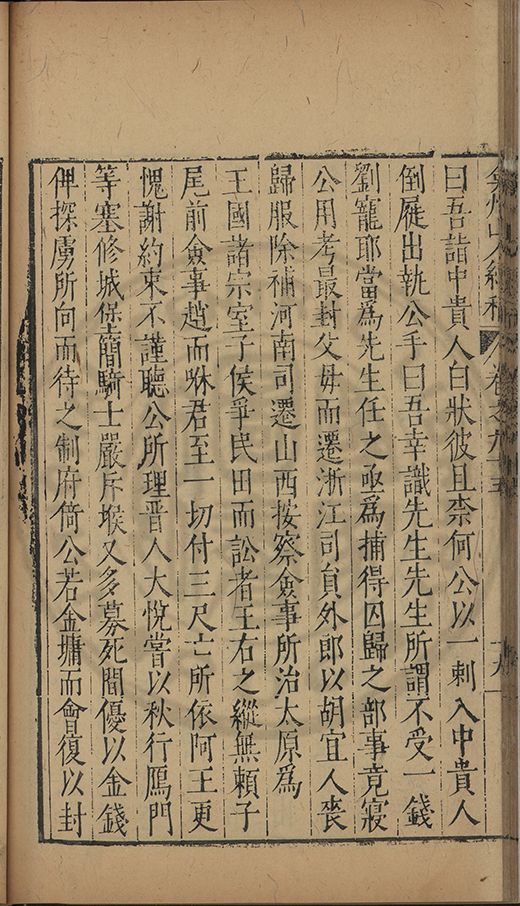 弇州山人續稿 卷之九十五
曰吾詰中貴人白狀彼且柰何公以一刺入中貴人
倒屣出執公手曰吾幸識先生先生所謂不受一錢
劉寵耶當為先生任之亟為捕得囚歸之部事竟寢
公用考最封父母而遷浙江司員外郎以胡宜人喪
歸服除補河南司遷山西按察僉事所治太原為
王國諸宗室子侯爭民田而訟者王右之縱無賴子
尾前僉事趙而咻君至一切付三尺亡所依阿王更
愧謝約束不謹聽公所理晉人大悅嘗以秋行鴈門
等塞修城堡簡騎士嚴斥堠又多募死間優以金錢
俾探虜所向而待之制府倚公若金墉而會復以封